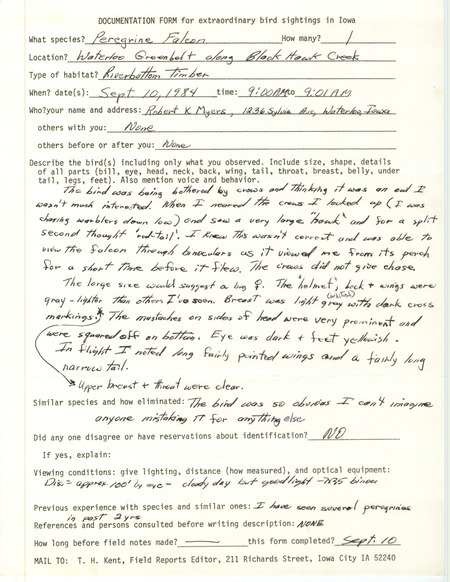 DOCUMENTATION FORM for extraordinary bird sightings in Iowa
What species? Peregrine Falcon How many? 1
Location? Waterloo Greenbelt along Black Hawk Creek
Type of habitat? Riverbottom Timber
When? date(s): Sept 10, 1984 time: 9:00AM to 9:01AM
Who?your name and address: Robert K Myers, 1236 Sylvia Ave, Waterloo, Iowa
others with you: None
others before or after you: None
Describe the bird(s) including only what you observed. Include size, shape, details
of all parts (bill, eye, head, neck, back, wing, tail, throat, breast, belly, under
tail, legs, feet). Also mention voice and behavior.
The bird was being bothered by crows and thinking it was an owl I
wasn't much interested. When I neared the crows I looked up (I was
chasing warblers down low) and saw a very large "hawk" and for a split
second thought 'red-tail'. I knew this wasn't correct and was able to
view the falcon through binoculars as it viewed me from its perch
for a short time before it flew. The crows did not give chase.
The large size would suggest a big ♀. The "helmet", back + wings were
gray - lighter than others I've seen. Breast was light gray (whitish) with dark cross
markings.* The mustaches on sides of head were very prominent and
were squared off on bottom. Eye was dark + feet yellowish.
In flight I noted long fairly pointed wings and a fairly long
narrow tail.
* Upper breast + throat were clear.
Similar species and how eliminated: The bird was so obvious I can't imagine
anyone mistaking it for anything else
Did any one disagree or have reservations about identification? NO
If yes, explain:
Viewing conditions: give lighting, distance (how measured), and optical equipment:
Dis. = approx. 100' by eye - cloudy day but good light - 7x35 binocs
Previous experience with species and similar ones: I have seen several peregrines
in past 2 yrs
References and persons consulted before writing description: NONE
How long before field notes made? —— this form completed? Sept. 10
MAIL TO: T. H. Kent, Field Reports Editor, 211 Richards Street, Iowa City IA 52240